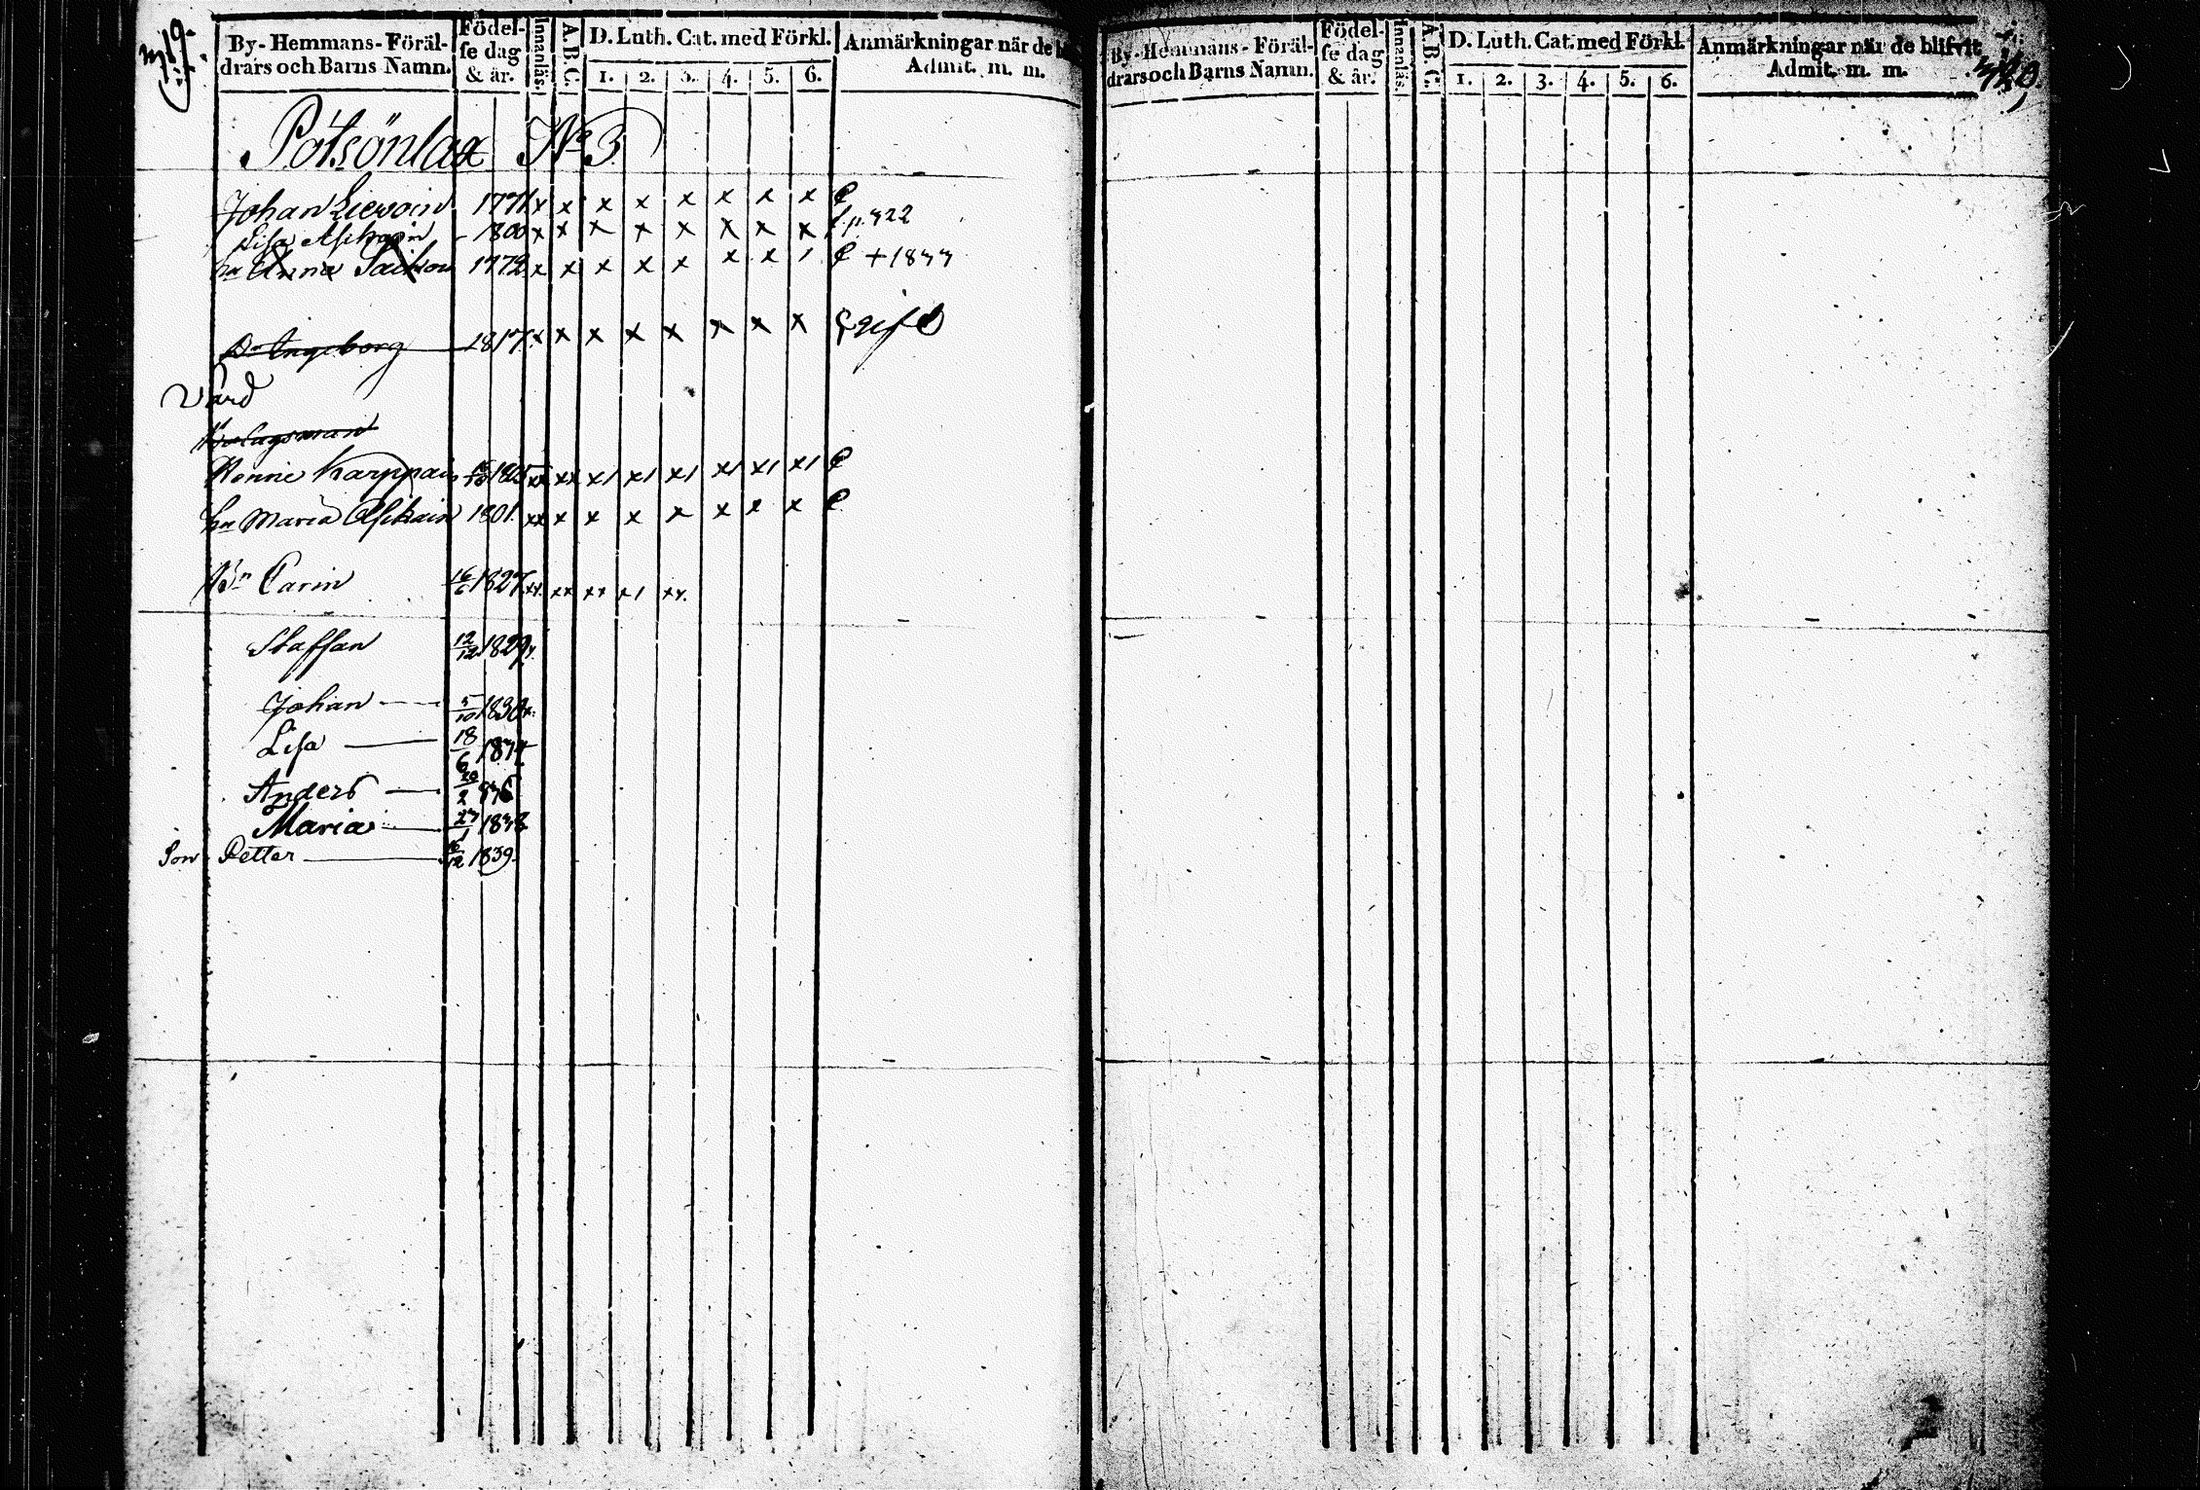 319.
By-Hemmans-Föräl-
drars och Barns Namn.
Födel-
se dag
& år.
Innanläs.
A.B.C.
D. Luth. Cat. med Förkl.
1. 2. 3. 4. 5. 6.
Anmärkningar när de
Admit. m. m.
Pötsönlax No 3
Johan 1771 x x x x x x x x
Lisa 1800 x x x x x x x x f. p. 322
hu Anna 1772 x x x x x x x +1833
Dr Ingeborg 1817 x x x x x x x x gift
Vård
Bolagsman
1805 xx xx x1 x1 x1 x1 x1 x1
hu Maria 1801 xx x x x x x x x
Dr Carin 16/6 1827 xx xx xx x1 xx
Staffan 12/12 1829
Johan 5/10 1830 x
Lisa 18/6 1834
Anders 20/2 836
Maria 23/1 1838
Son Petter 16/12 1839
By-Hemmans-Föräl-
drars och Barns Namn.
Födel-
se dag
& år.
Innanläs.
A.B.C.
D. Luth. Cat. med Förkl.
1. 2. 3. 4. 5. 6.
Anmärkningar när de blifvit
Admit. m. m.
320.